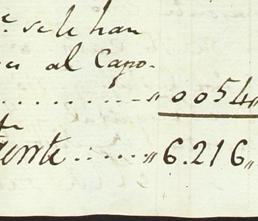 se le han
al Capo-
"0054"
"6.216"